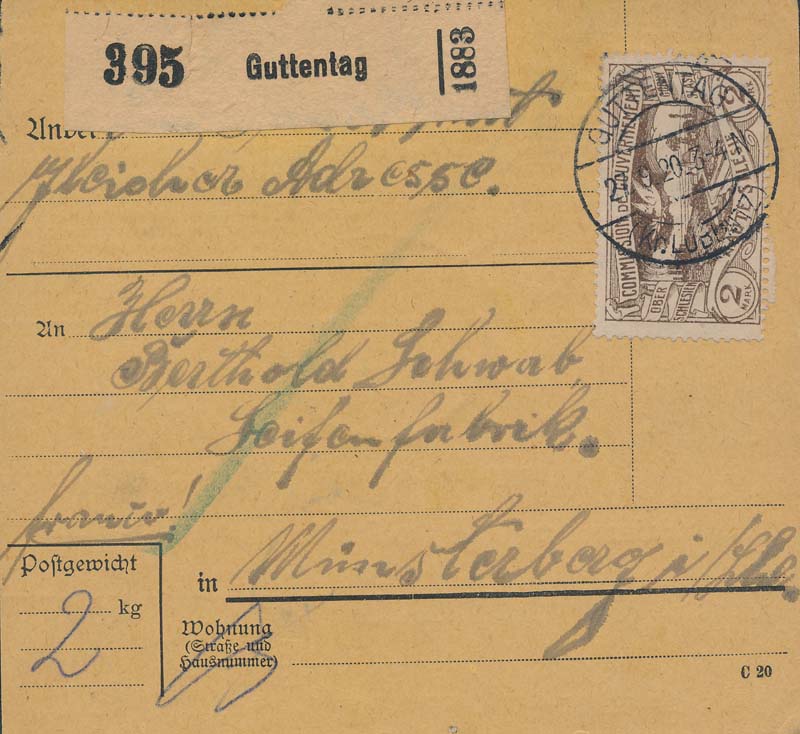 395 Guttentag 1883
gleicher Adresse.
An Herrn
Berthold Schwab
Seifenfabrik.
franco!
Postgewicht
2 kg
in Münsterberg i/Schl.
Wohnung
(Straße und
Hausnummer)
C 20
GUTTENTAG
9.20.3-4N
COMMISSION DE GOUVERNEMENT
HAUTE SILÉSIE
OBER
SCHLESIEN
2
MARK